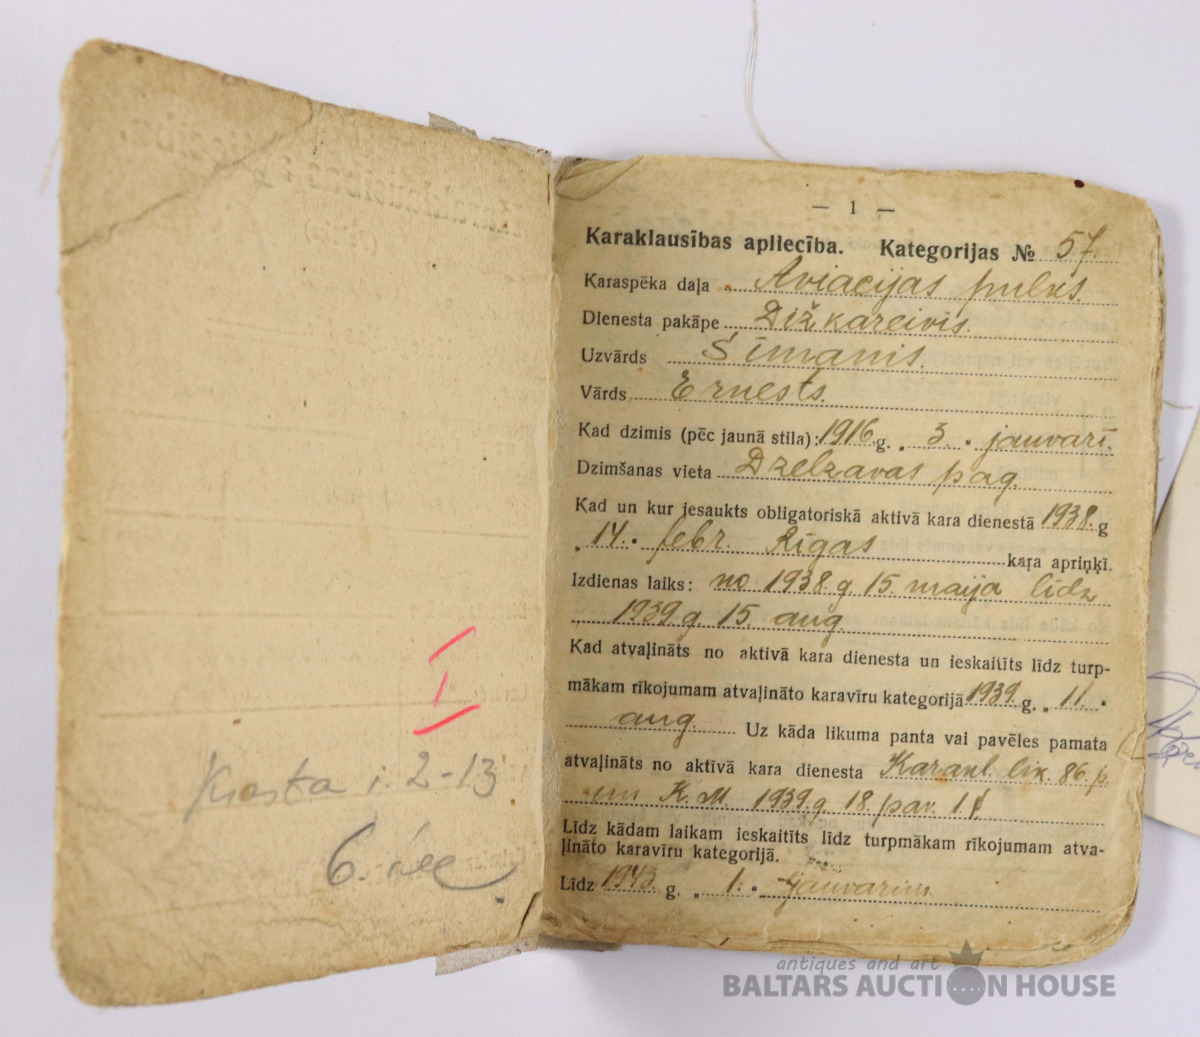 I
Krasta i. 2-13
6.
— 1 —
Karaklausības apliecība. Kategorijas № 57.
Karaspēka daļa Aviacijas pulks.
Dienesta pakāpe Dižkareivis.
Uzvārds Sīmanis.
Vārds Ernests.
Kad dzimis (pēc jaunā stila): 1916. g. „ 3. " janvarī.
Dzimšanas vieta Dzelzavas pag.
Kad un kur iesaukts obligatoriskā aktivā kara dienestā 1938. g
„ 14. " febr. Rīgas kaŗa apriņķī.
Izdienas laiks: no 1938. g. 15. maija līdz
1939 g. 15. aug.
Kad atvaļināts no aktivā kara dienesta un ieskaitīts līdz turp-
mākam rīkojumam atvaļināto karavīru kategorijā 1939. g. „ 11. "
aug. Uz kāda likuma panta vai pavēles pamata
atvaļināts no aktīvā kara dienesta Karakl. lik. 86. p.
un K. M. 1939. g. 18. pav. 1
Līdz kādam laikam ieskaitīts līdz turpmākam rīkojumam atva-
ļināto karavīru kategorijā.
Līdz 1943. g. „ 1. " janvarim
antiques and art
BALTARS AUCTION HOUSE